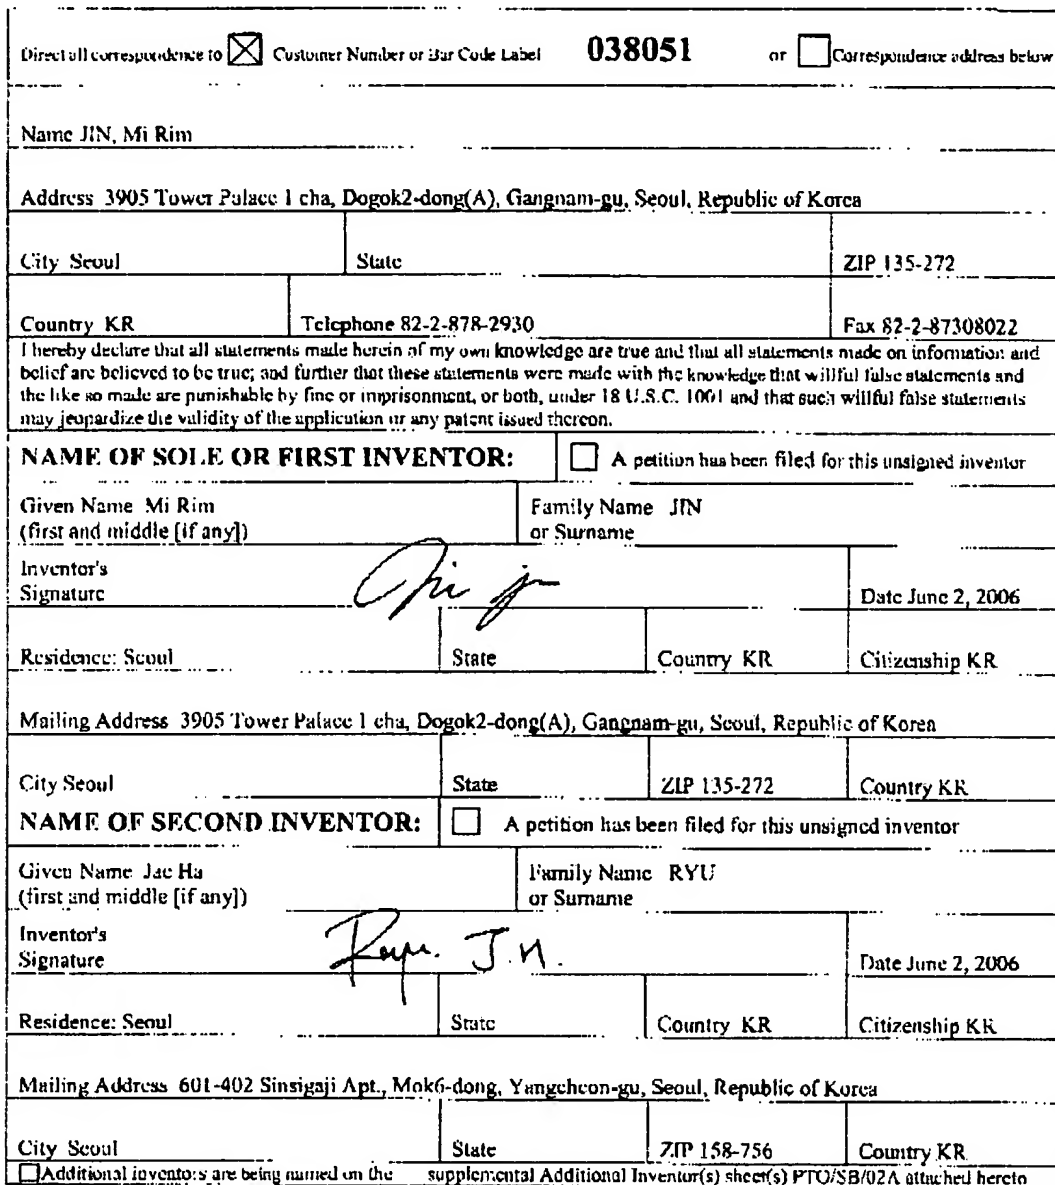 Direct all correspondence to ☒ Customer Number or Bar Code Label 038051 or ☐ Correspondence address below
Name JIN, Mi Rim
Address 3905 Tower Palace 1 cha, Dogok2-dong(A), Gangnam-gu, Seoul, Republic of Korea
City Seoul State ZIP 135-272
Country KR Telephone 82-2-878-2930 Fax 82-2-87308022
I hereby declare that all statements made herein of my own knowledge are true and that all statements made on information and
belief are believed to be true; and further that these statements were made with the knowledge that willful false statements and
the like so made are punishable by fine or imprisonment, or both, under 18 U.S.C. 1001 and that such willful false statements
may jeopardize the validity of the application or any patent issued thereon.
NAME OF SOLE OR FIRST INVENTOR: ☐ A petition has been filed for this unsigned inventor
Given Name Mi Rim Family Name JIN
(first and middle [if any]) or Surname
Inventor's
Signature Date June 2, 2006
Residence: Seoul State Country KR Citizenship KR
Mailing Address 3905 Tower Palace 1 cha, Dogok2-dong(A), Gangnam-gu, Seoul, Republic of Korea
City Seoul State ZIP 135-272 Country KR
NAME OF SECOND INVENTOR: ☐ A petition has been filed for this unsigned inventor
Given Name Jae Ha Family Name RYU
(first and middle [if any]) or Surname
Inventor's
Signature Ryu. J.H. Date June 2, 2006
Residence: Seoul State Country KR Citizenship KR
Mailing Address 601-402 Sinsigaji Apt., Mok6-dong, Yangcheon-gu, Seoul, Republic of Korea
City Seoul State ZIP 158-756 Country KR
☐ Additional inventors are being named on the supplemental Additional Inventor(s) sheet(s) PTO/SB/02A attached hereto